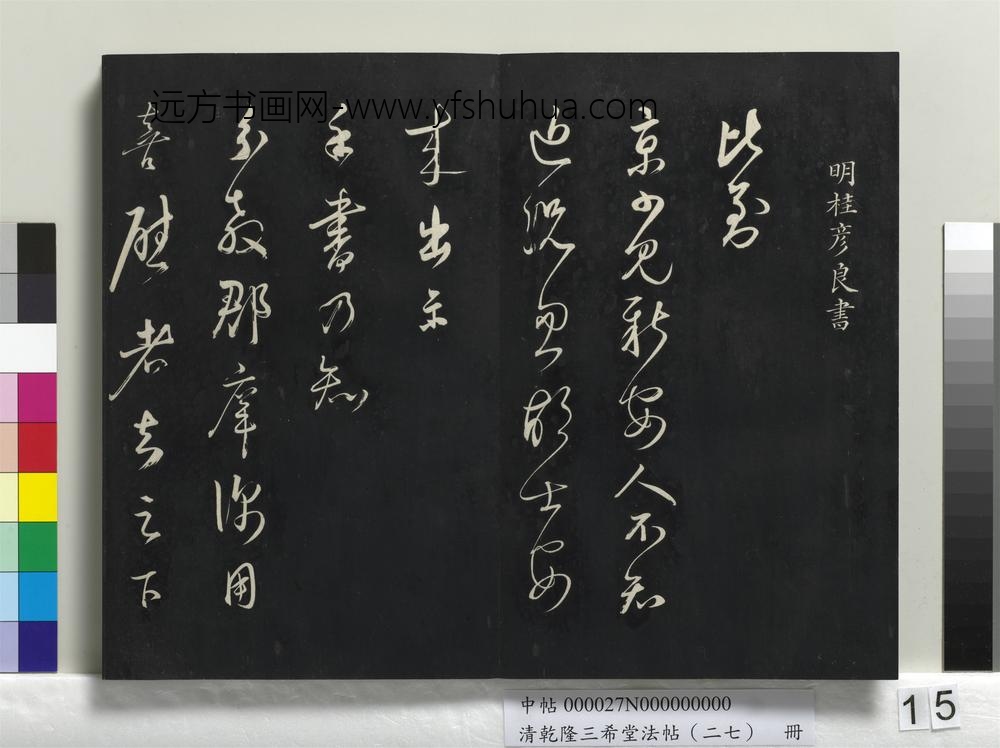 远方书画网-www.yfshuhua.com
明桂彦良書
比
京少見新安人不知
近況忽胡士安
来出示
手書乃知
分教郡庠深用
喜慰老之下
中帖 000027N000000000
清乾隆三希堂法帖（二七） 冊
15